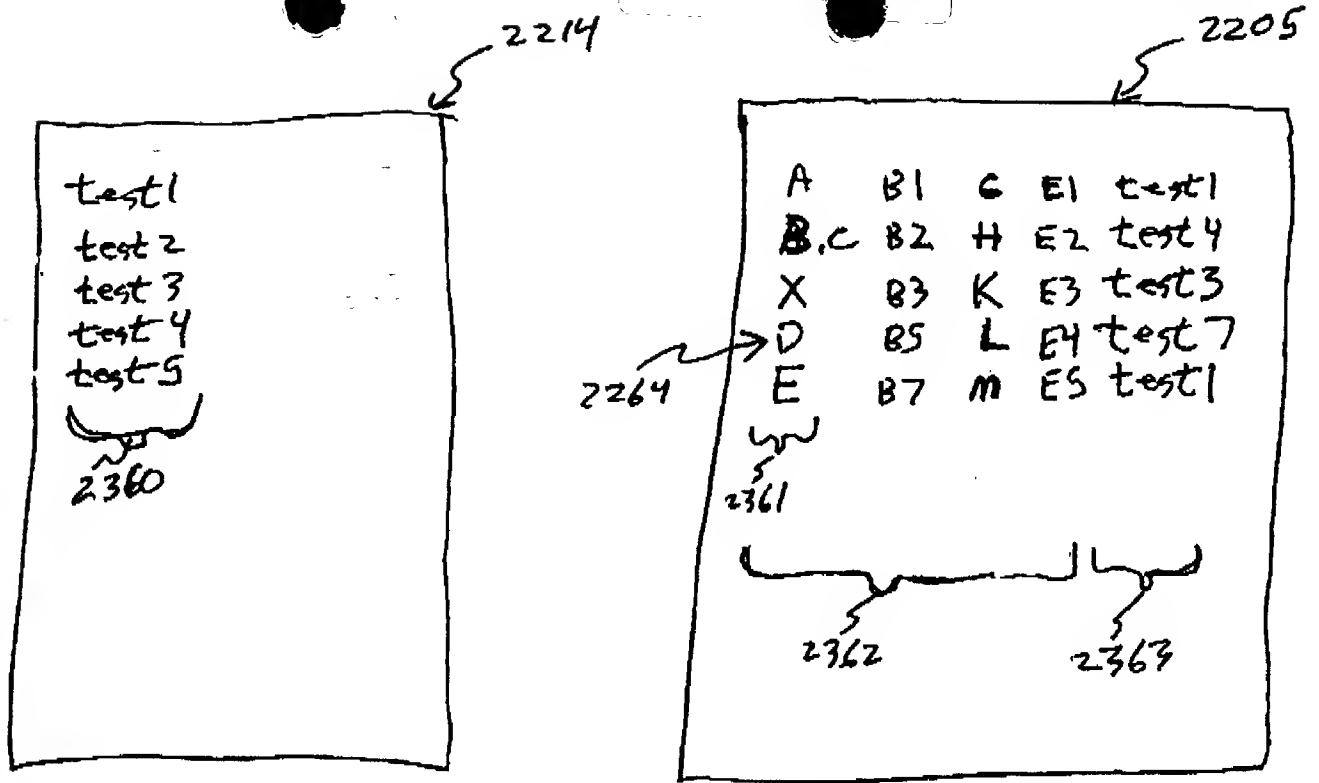 2214
test1
test2
test3
test4
test5
2360
2205
A B1 G E1 test1
B,C B2 H E2 test4
X B3 K E3 test3
D B5 L E4 test7
E B7 M E5 test1
2264
2361
2362 2363